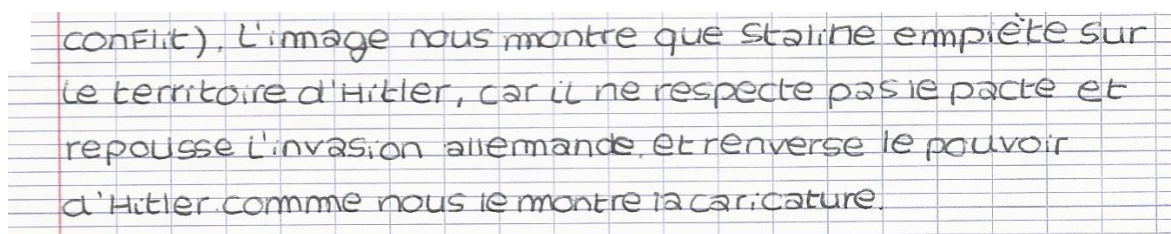 conflit). L'image nous montre que Staline empiète sur
le territoire d'Hitler, car il ne respecte pas le pacte et
repousse l'invasion allemande. et renverse le pouvoir
d'Hitler comme nous le montre la caricature.